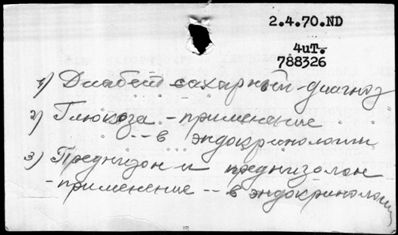 2.4.70.ND
4uT.
788326
1) Диабет сахарный-диагноз
2) Глюкоза - применение
-- в эндокринологии
3) Преднизон и преднизолон
- применение -- в эндокринологии